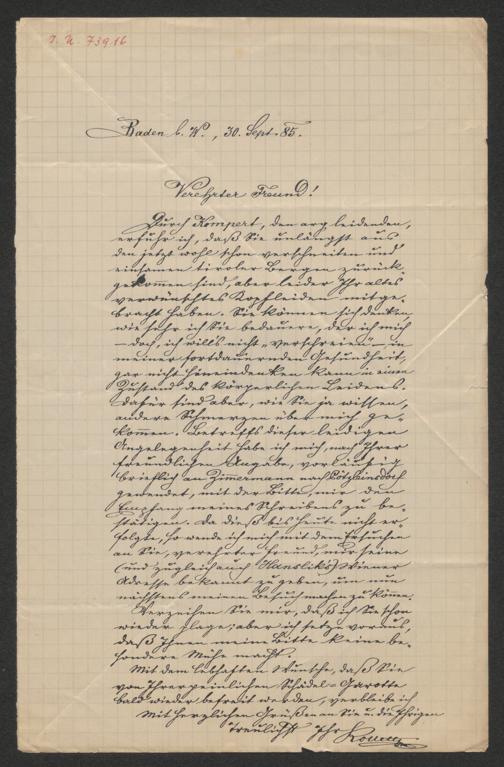 J. N. 73916
Baden b. W., 30. Sept. 85.
Verehrter Freund!
Durch Kompert, den arg leidenden,
erfuhr ich, daß Sie unlängst aus
den jetzt wohl schon verschneiten und
einsamen tiroler Bergen zurück
gekommen sind, aber leider Ihr altes
verwünschtes Kopfleiden mitge-
bracht haben. Sie können sich denken,
wie sehr ich Sie bedauere, der ich mich
– doch, ich will's nicht „verschreien" – in
meiner fortdauernden Gesundheit,
gar nicht hineindenken kann in einen
Zustand des körperlichen Leidens.
Dafür sind aber, wie Sie ja wissen,
andere Schmerzen über mich ge-
kommen. Betreffs dieser leidigen
Angelegenheit habe ich mich, nach Ihrer
freundlichen Angabe, vorläufig
brieflich an Zimermann nach
gewendet, mit der Bitte, mir den
Empfang meines Schreibens zu be-
stätigen. Da dieß bis heute nicht er-
folgte, so wende ich mich mit dem Ersuchen
an Sie, verehrter Freund, mir seine
(und zugleich auch Hanslik's) Wiener
Adresse bekannt zu geben, um nun
nächstens meinen Besuch machen zu können.
Verzeihen Sie mir, daß ich Sie schon
wieder plage; aber ich setze voraus,
daß Ihnen meine Bitte keine be-
sondere Mühe macht.
Mit dem lebhaften Wunsche, daß Sie
von Ihrer peinlichen Schädel-Garotte
bald wieder befreit werden, verbleibe ich
Mit herzlichen Grüßen an Sie u. die Ihrigen
treulichst Ihr